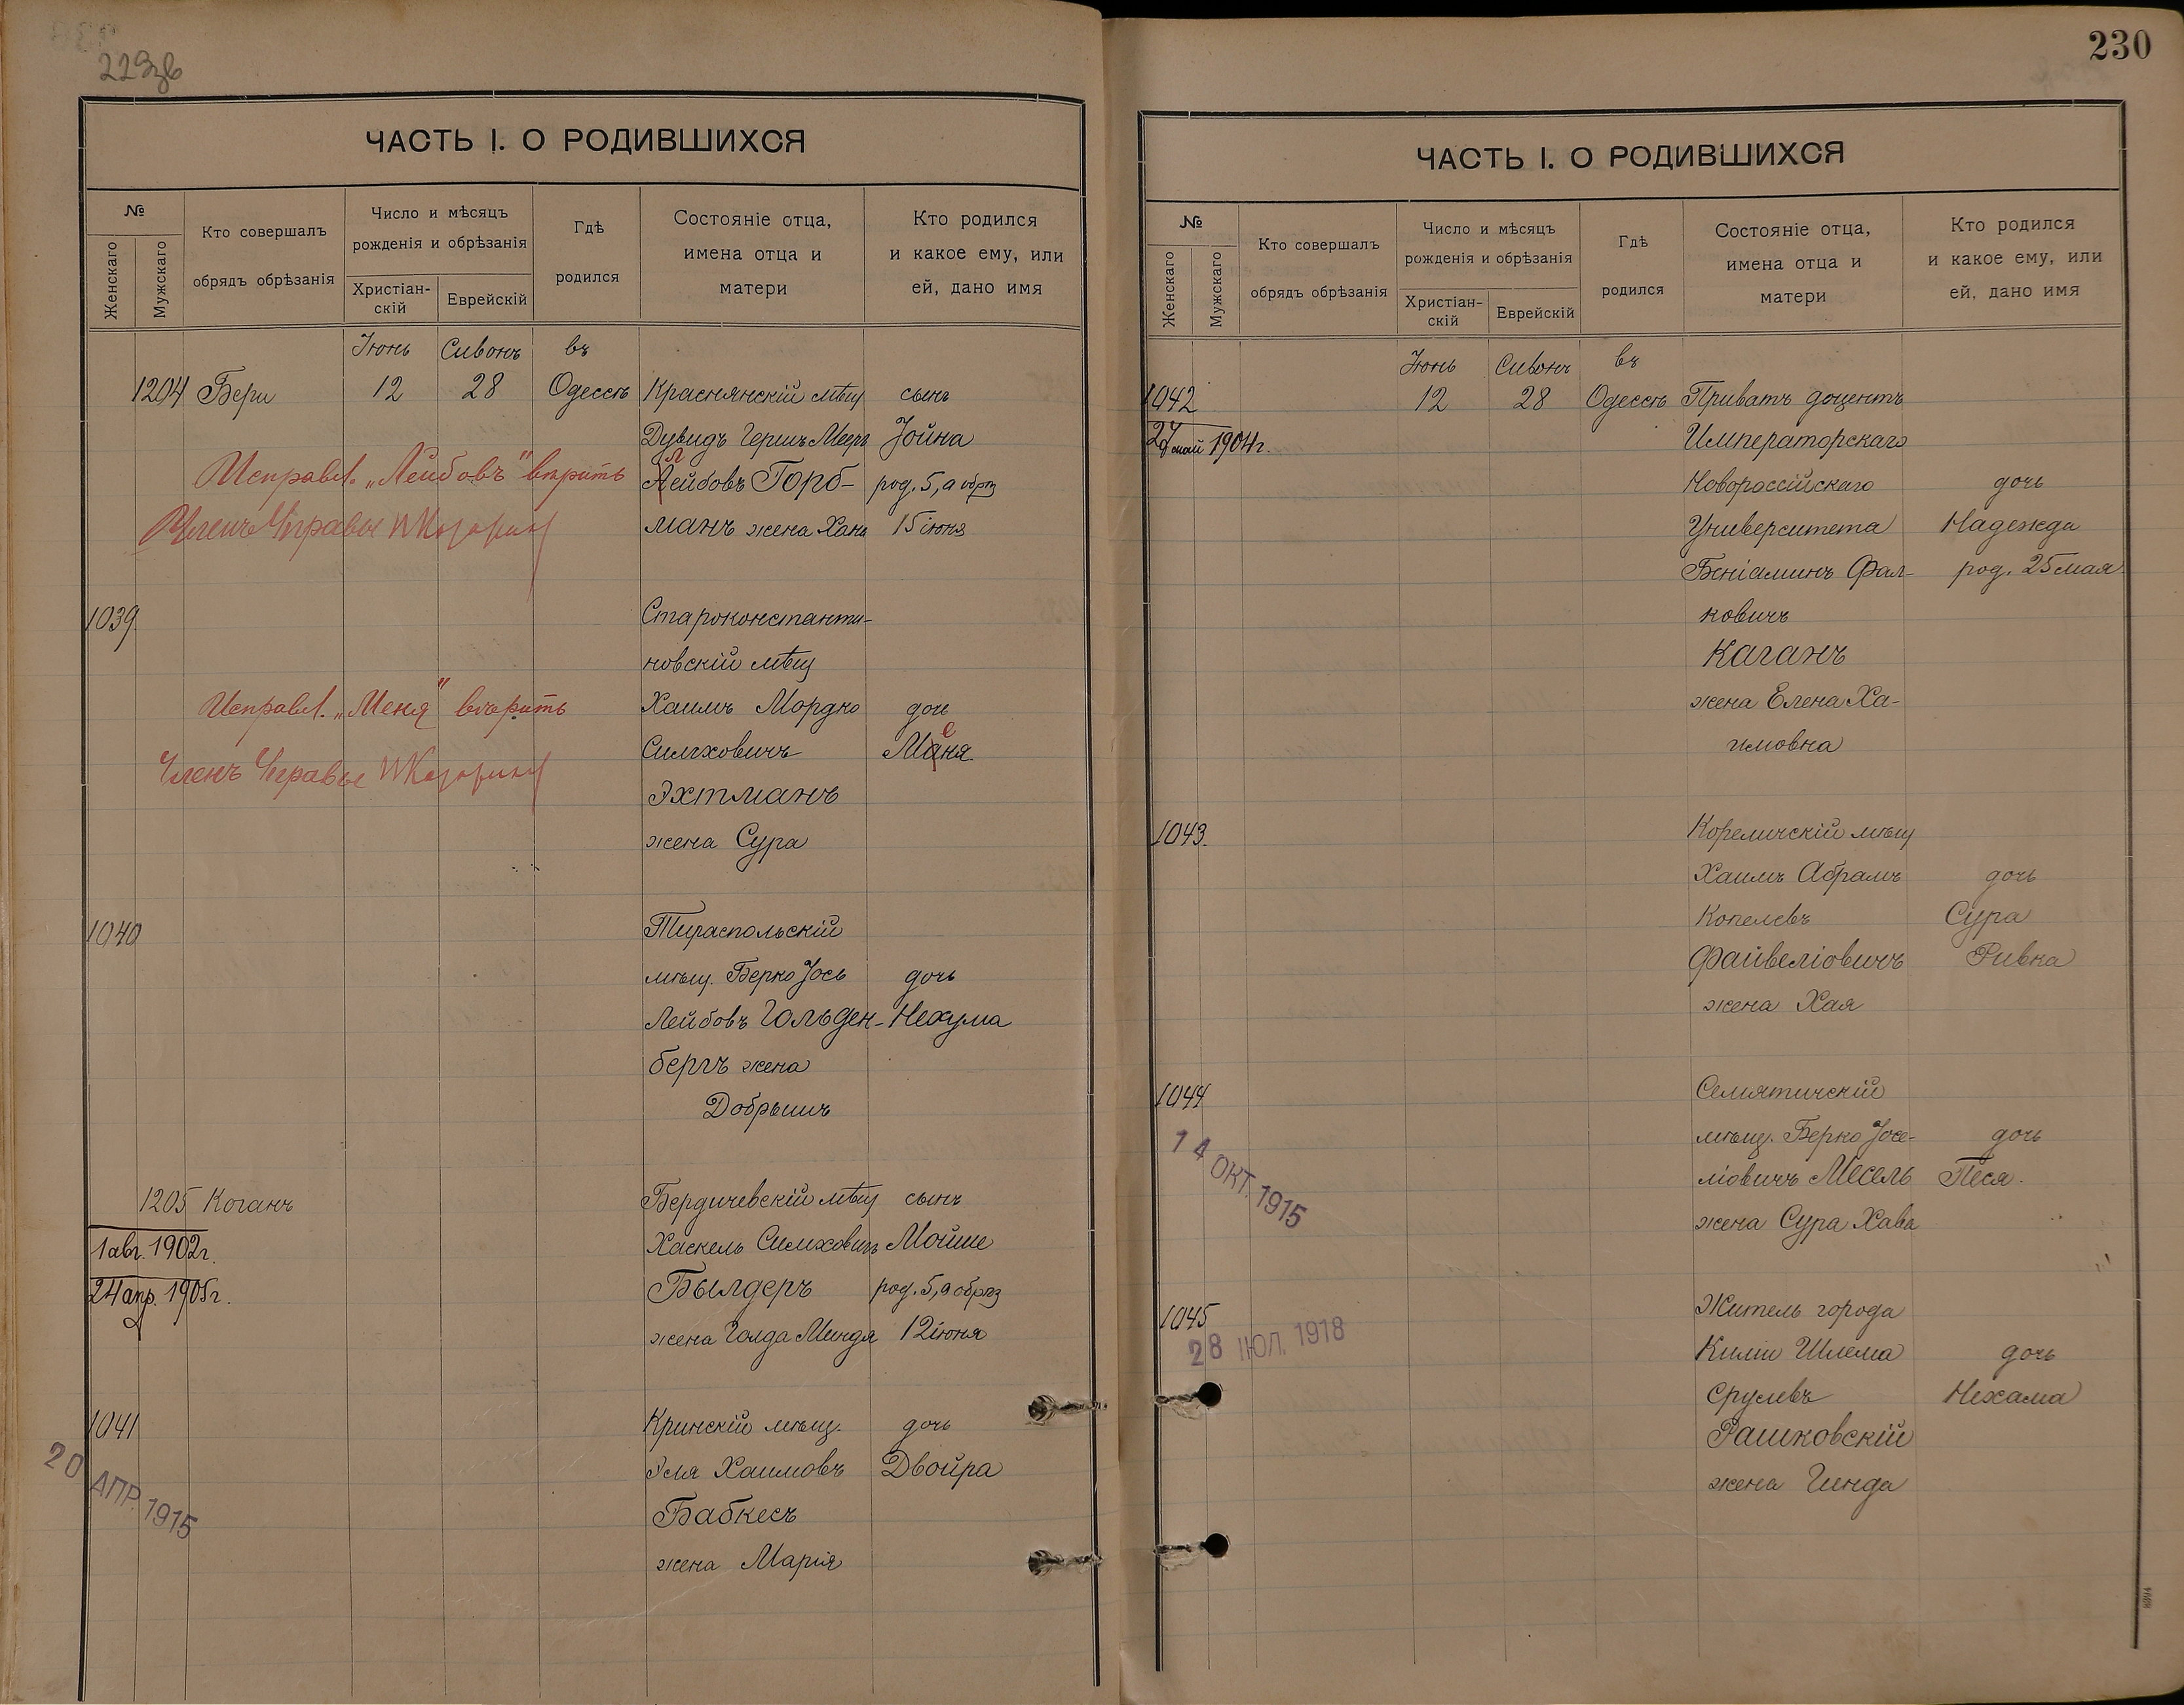 229 об
ЧАСТЬ I. О РОДИВШИХСЯ
№
Женскаго
Мужскаго
Кто совершалъ
обрядъ обрѣзанія
Число и мѣсяцъ
рожденія и обрѣзанія
Христіан-
скій
Еврейскій
Гдѣ
родился
Состояніе отца,
имена отца и
матери
Кто родился
и какое ему, или
ей, дано имя
Іюнь Сивонъ въ
1204 Бери 12 28 Одессѣ Краснянскій мѣщ сынъ
Дувидъ Гершъ Мееръ Іойна
Лейбовъ Горб- род. 5, а обрѣз
манъ жена Хана 15 іюня
Исправл. „Лейбовъ" вѣрить
Членъ Управы
1039
Староконстанти-
новскій мѣщ
Хаимъ Мордко дочь
Симховичъ Меня
Эхтманъ
жена Сура
Исправл. „Меня" вѣрить
Членъ Управы
1040 Тираспольскій
мѣщ. Берко Іось дочь
Лейбовъ Гольден- Нехума
бергъ жена
Добрышъ
1205 Коганъ Бердичевскій мѣщ сынъ
1 авг. 1902 г. Хаскель Симховичъ Мойше
24 апр. 1905 г. Былдеръ род. 5, а обрѣз
жена Голда Миндя 12 іюня
1041 Кринскій мѣщ. дочь
Эля Хаимовъ Двойра
Бабкесъ
жена Марія
20 АПР. 1915
230
ЧАСТЬ I. О РОДИВШИХСЯ
№
Женскаго
Мужскаго
Кто совершалъ
обрядъ обрѣзанія
Число и мѣсяцъ
рожденія и обрѣзанія
Христіан-
скій
Еврейскій
Гдѣ
родился
Состояніе отца,
имена отца и
матери
Кто родился
и какое ему, или
ей, дано имя
Іюнь Сивонъ въ
1042 12 28 Одессѣ Приватъ доцентъ
27 май 1904 г. Императорскаго
Новороссійскаго дочь
Университета Надежда
Беніаминъ Фал- род. 25 мая
ковичъ
Каганъ
жена Елена Ха-
имовна
1043. Кореличскій мѣщ
Хаимъ Абрамъ дочь
Копелевъ Сура
Файвеліовичъ Ривка
жена Хая
1044 Семятичскій
мѣщ. Берко Іосе- дочь
ліовичъ Месель Песя.
жена Сура Хава
14 ОКТ. 1915
1045 Житель города
Киліи Шлема дочь
Срулевъ Нехама
Рашковскій
жена Гинда
28 ІЮЛ. 1918